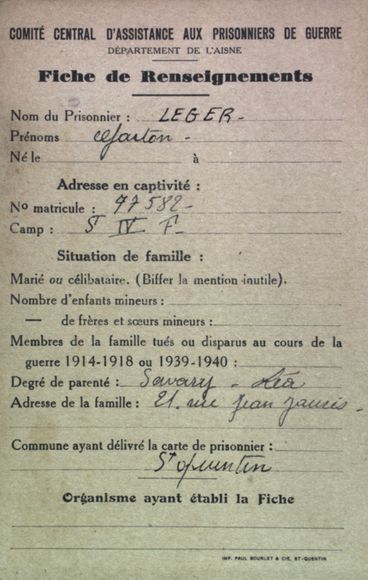 COMITÉ CENTRAL D'ASSISTANCE AUX PRISONNIERS DE GUERRE
DÉPARTEMENT DE L'AISNE
Fiche de Renseignements
Nom du Prisonnier : LEGER -
Prénoms Gaston -
Né le à
Adresse en captivité :
No matricule : 77582 -
Camp : S IV F -
Situation de famille :
Marié ou célibataire. (Biffer la mention inutile).
Nombre d'enfants mineurs :
— de frères et sœurs mineurs :
Membres de la famille tués ou disparus au cours de la
guerre 1914-1918 ou 1939-1940 :
Degré de parenté : Savary - Léa
Adresse de la famille : 21. rue Jean Jaurès -
Commune ayant délivré la carte de prisonnier :
St Quentin
Organisme ayant établi la Fiche
IMP. PAUL BOURLET & CIE, ST-QUENTIN